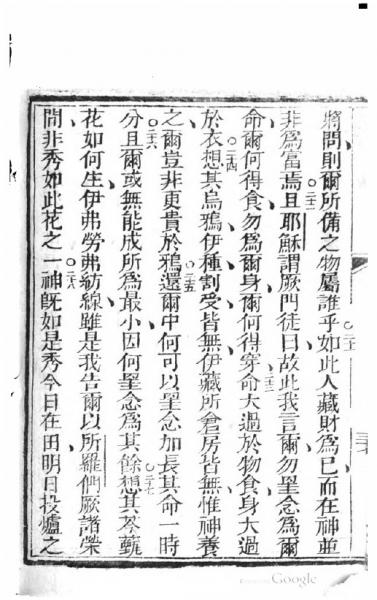 將問則爾所備之物屬誰乎○二十一如此人藏財爲己而在神並
非爲富焉○二十二且耶穌謂厥門徒曰故此我言爾勿罣念爲爾
命爾何得食勿爲爾身爾何得穿○二十三命大過於物食身大過
於衣○二十四想其烏鴉伊種割受皆無伊藏所倉房皆無惟神養
之爾豈非更貴於鴉還○二十五爾中何可以罣念加長其命一時
分○二十六且爾或無能成所爲最小因何罣念爲其餘○二十七想其苓蘛
花如何生伊弗勞弗紡線雖是我告爾以所羅們厥諸榮
間非秀如此花之一○二十八神旣如是秀今日在田明日投爐之
Google